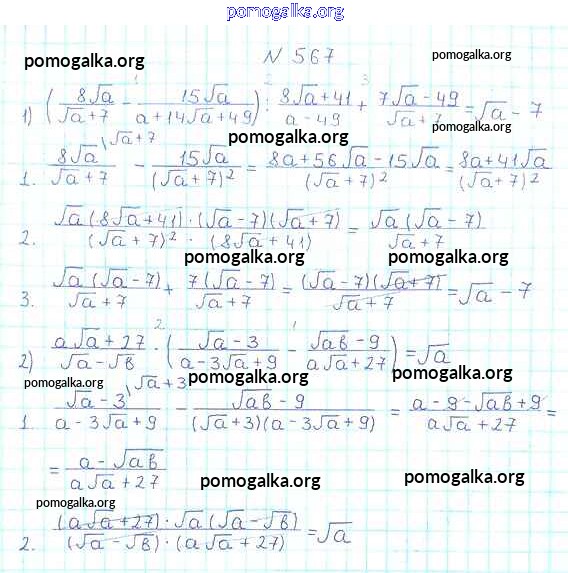 pomogalka.org
N 567
pomogalka.org pomogalka.org
1) (8√a/(√a+7) - 15√a/(a+14√a+49)) : (8√a+41)/(a-49) + (7√a-49)/(√a+7) = √a - 7
pomogalka.org pomogalka.org
1. 8√a/(√a+7) \√a+7 - 15√a/(√a+7)² = (8a+56√a-15√a)/(√a+7)² = (8a+41√a)/(√a+7)²
2. √a(8√a+41)·(√a-7)(√a+7)/((√a+7)²·(8√a+41)) = √a(√a-7)/(√a+7)
pomogalka.org
3. √a(√a-7)/(√a+7) + 7(√a-7)/(√a+7) = (√a-7)(√a+7)/(√a+7) = √a - 7
2) (a√a+27)/(√a-√b) · ((√a-3)/(a-3√a+9) - (√ab-9)/(a√a+27)) = √a
pomogalka.org pomogalka.org pomogalka.org
1. (√a-3)/(a-3√a+9) \√a+3 - (√ab-9)/((√a+3)(a-3√a+9)) = (a-9-√ab+9)/(a√a+27) =
= (a-√ab)/(a√a+27)
pomogalka.org pomogalka.org
pomogalka.org
2. (a√a+27)·√a(√a-√b)/((√a-√b)·(a√a+27)) = √a